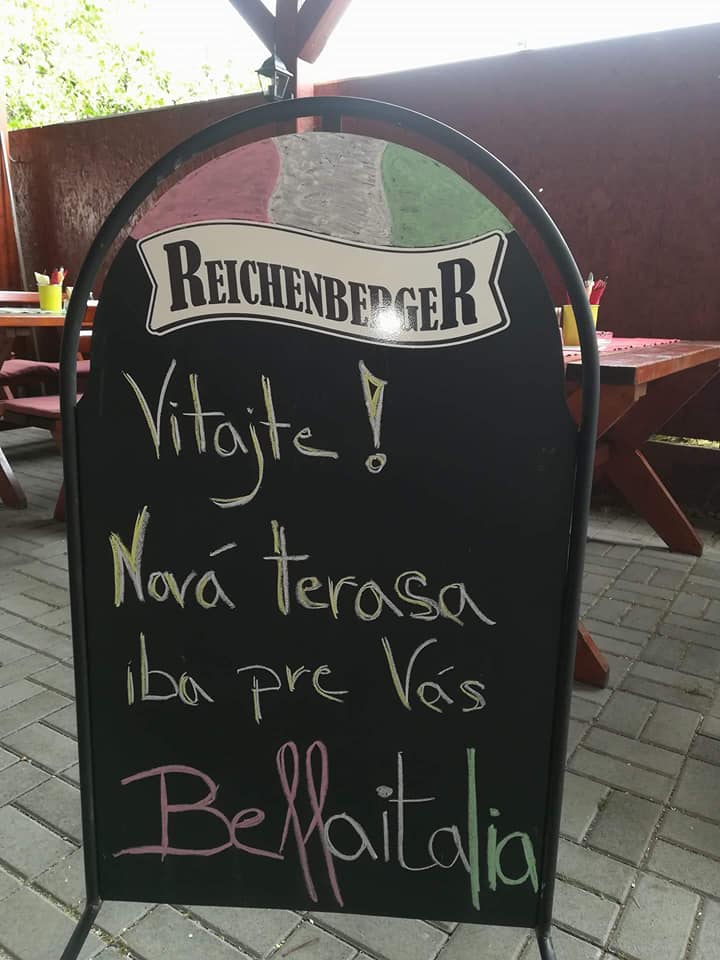 REICHENBERGER
Vitajte!
Nová terasa
iba pre Vás
Bellaitalia